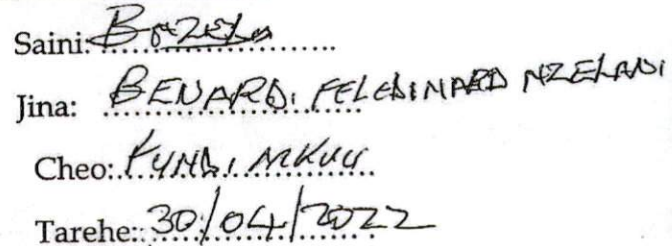 Saini:
Jina: BENARDI FELEDINARD NZELANI
Cheo: FUNDI MKUU
Tarehe: 30/04/2022